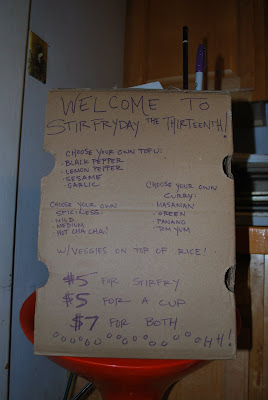 WELCOME TO
STIRFRYDAY THE THIRTEENTH!
CHOOSE YOUR OWN TOFU:
· BLACK PEPPER
· LEMON PEPPER
· SESAME
· GARLIC
CHOOSE YOUR OWN
SPICINESS:
MILD
MEDIUM
HOT CHA CHA!
CHOOSE YOUR OWN
CURRY:
MASAMAN
GREEN
PANANG
TOM YUM
W/ VEGGIES ON TOP OF RICE!
$5 FOR STIRFRY
$5 FOR A CUP
$7 FOR BOTH